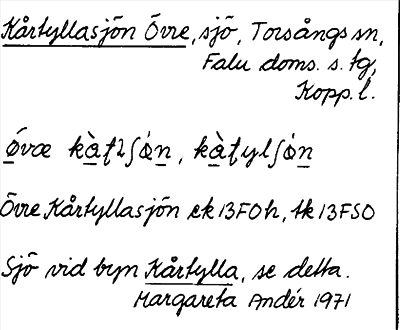 Kårtyllasjön Övre, sjö, Torsångs sn,
Falu doms. s. tg,
Kopp. l.
Övre Kårtyllasjön ek 13FOh, tk 13FSO
Sjö vid byn Kårtylla, se detta.
Margareta Andér 1971